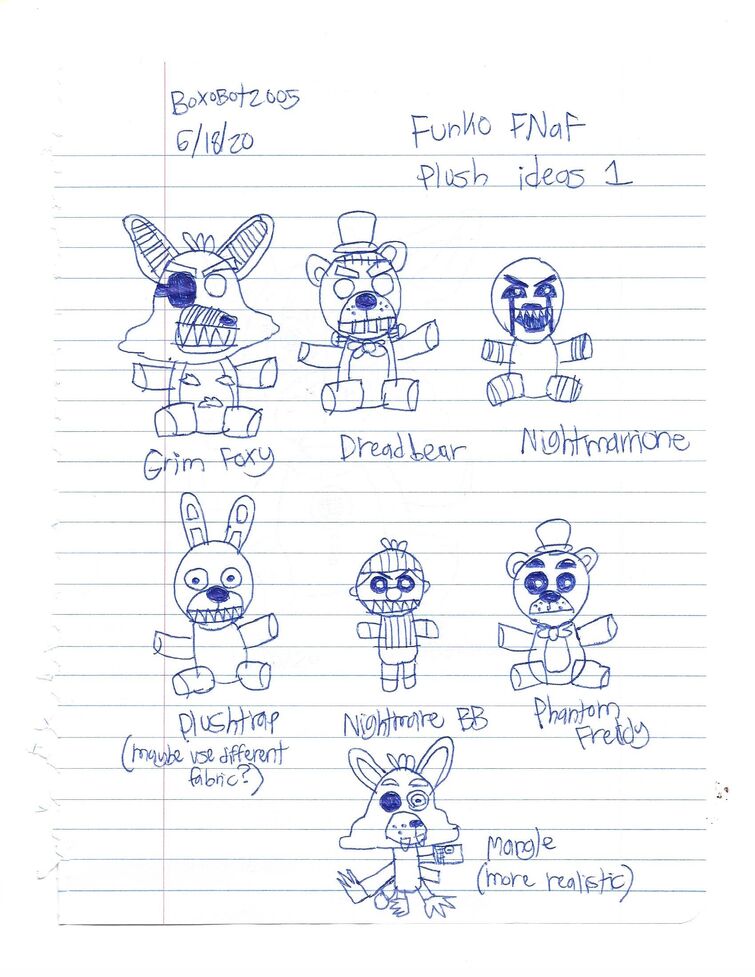 BoxoBot2005
6/18/20
Funko FNaF
Plush ideas 1
Grim Foxy
Dreadbear
Nightmarrione
Plushtrap
(maybe use different
fabric?)
Nightmare BB
Phantom
Freddy
Mangle
(more realistic)